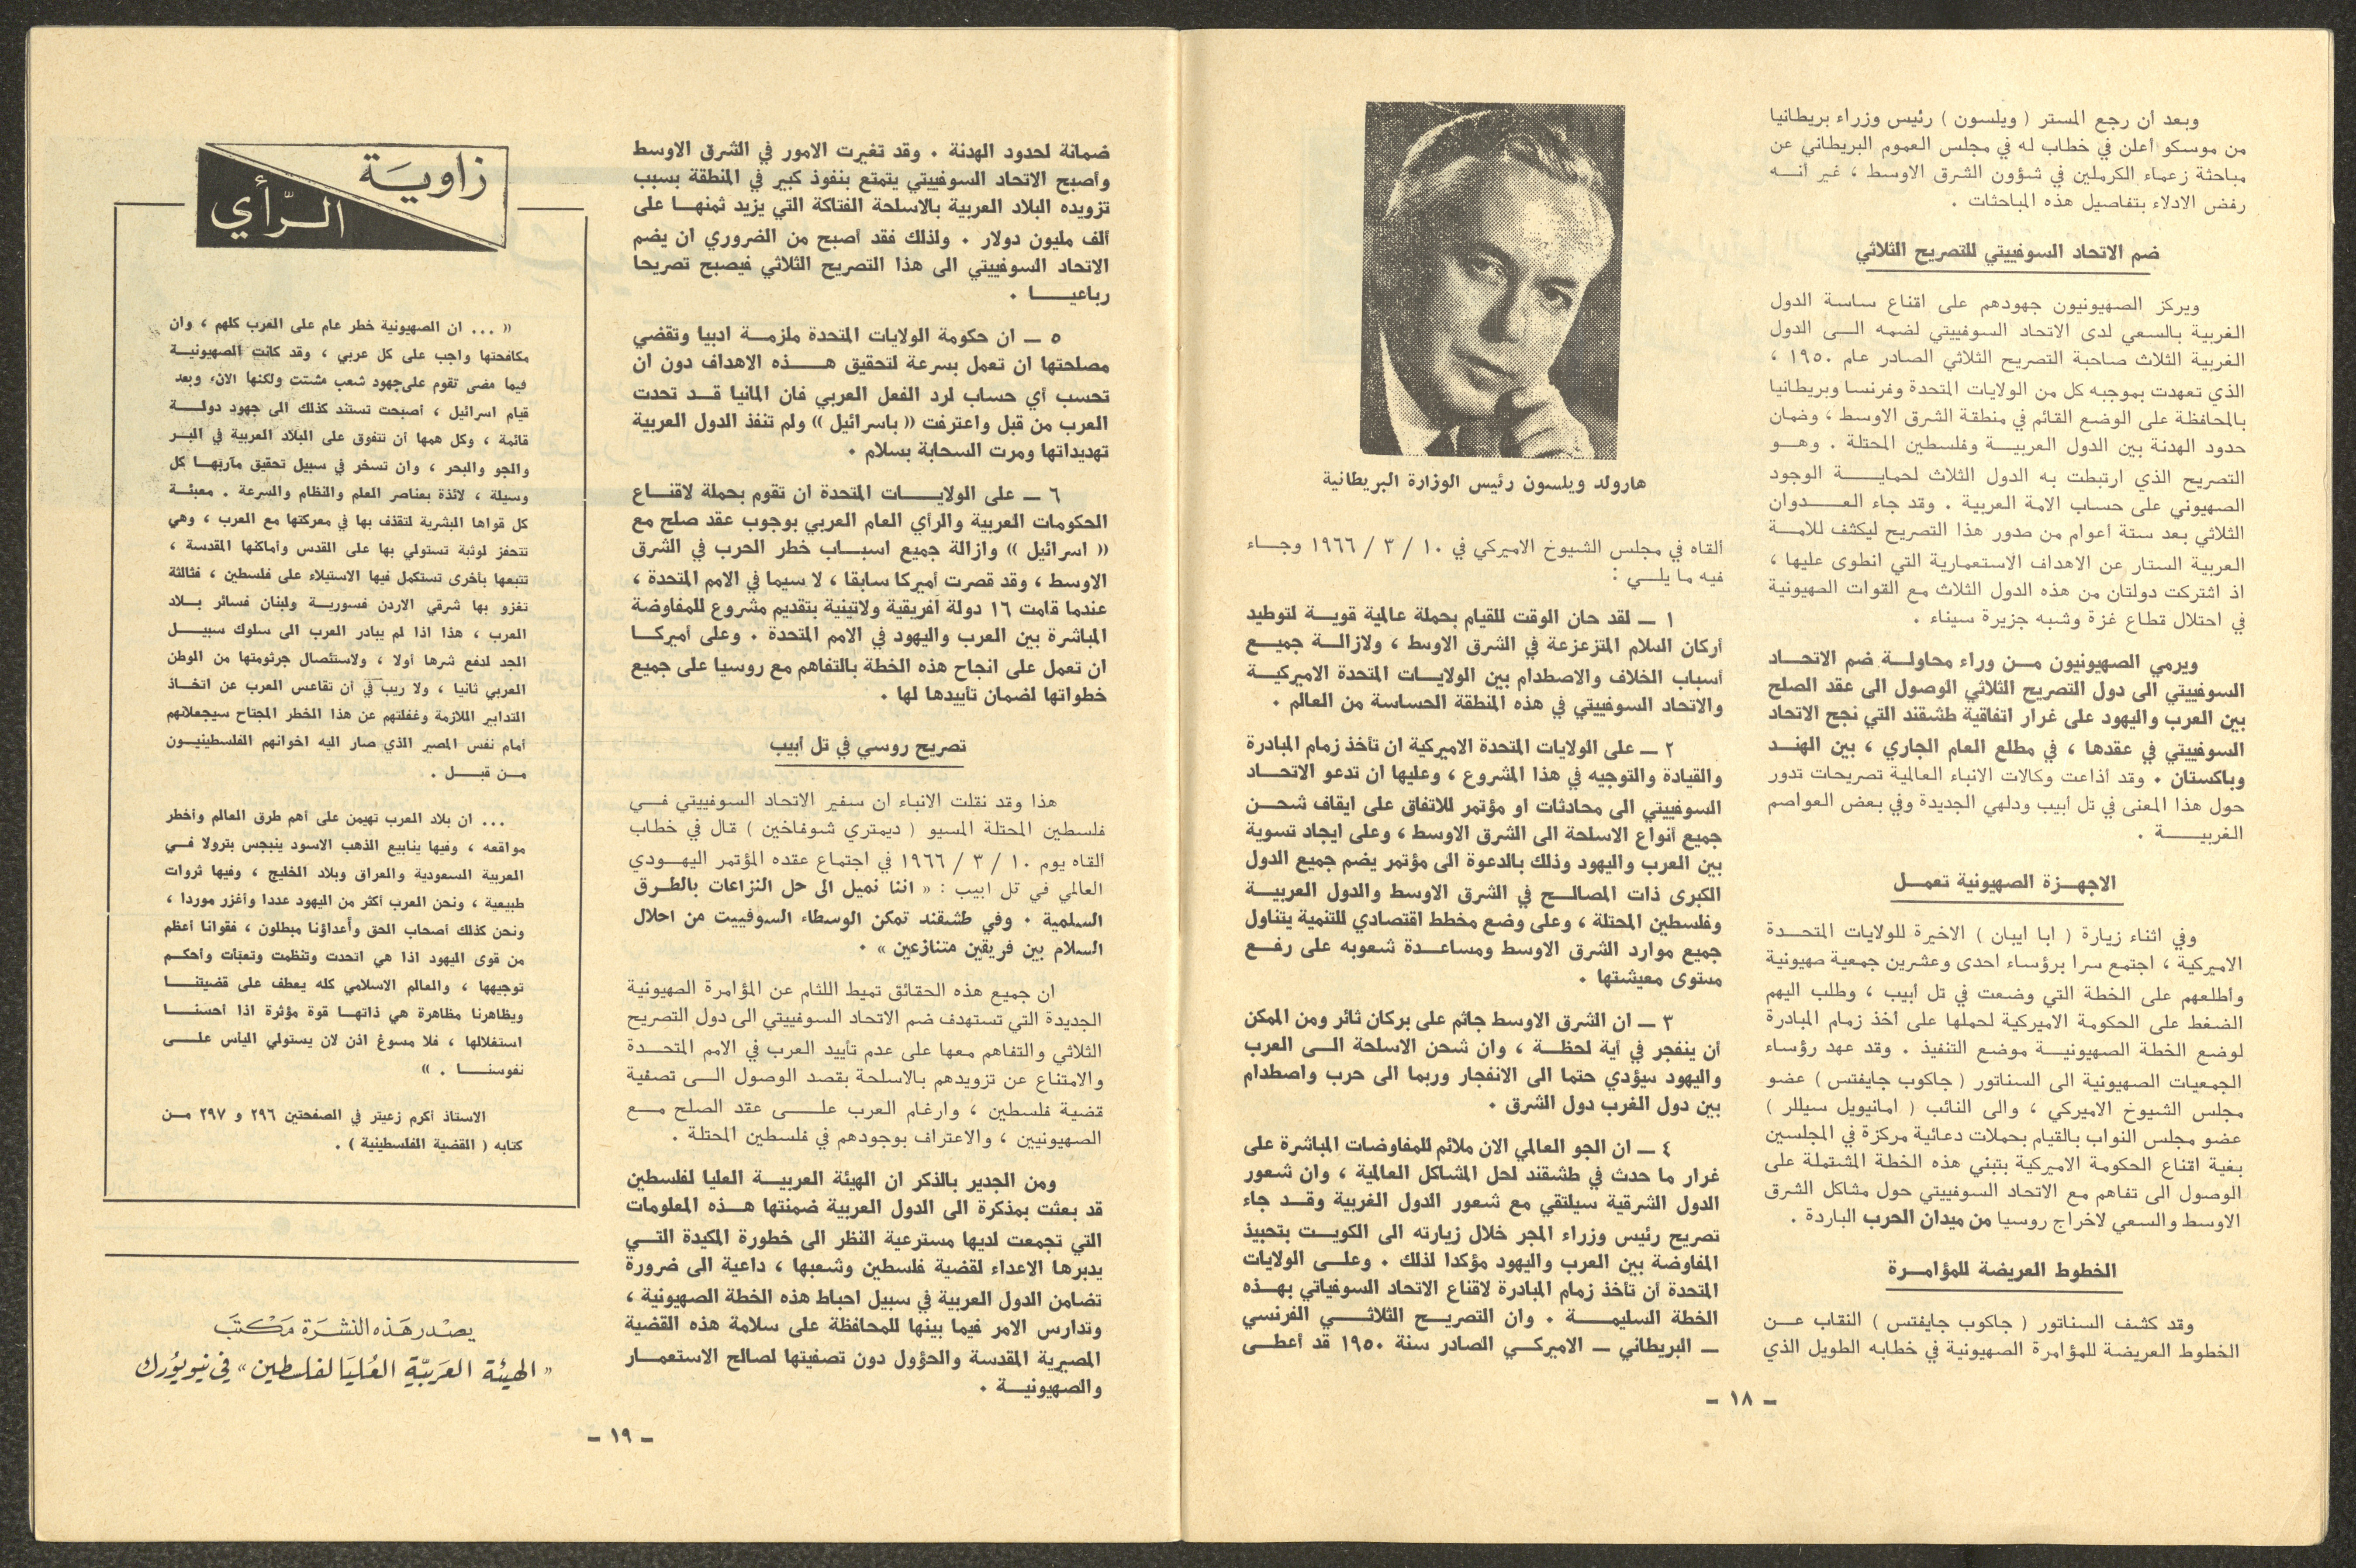 وبعد ان رجع المستر ( ويلسون ) رئيس وزراء بريطانيا
من موسكو أعلن في خطاب له في مجلس العموم البريطاني عن
مباحثة زعماء الكرملين في شؤون الشرق الاوسط ، غير أنــه
رفض الادلاء بتفاصيل هذه المباحثات .
ضم الاتحاد السوفييتي للتصريح الثلاثي
ويركز الصهيونيون جهودهم على اقناع ساسة الدول
الغربية بالسعي لدى الاتحاد السوفييتي لضمه الــى الدول
الغربية الثلاث صاحبة التصريح الثلاثي الصادر عام ١٩٥٠ ،
الذي تعهدت بموجبه كل من الولايات المتحدة وفرنسا وبريطانيا
بالمحافظة على الوضع القائم في منطقة الشرق الاوسط ، وضمان
حدود الهدنة بين الدول العربيــة وفلسطين المحتلة . وهــو
التصريح الذي ارتبطت به الدول الثلاث لحمايــة الوجود
الصهيوني على حساب الامة العربية . وقد جاء العــدوان
الثلاثي بعد ستة أعوام من صدور هذا التصريح ليكشف للامــة
العربية الستار عن الاهداف الاستعمارية التي انطوى عليها ،
اذ اشتركت دولتان من هذه الدول الثلاث مع القوات الصهيونية
في احتلال قطاع غزة وشبه جزيرة سيناء .
ويرمي الصهيونيون مــن وراء محاولــة ضم الاتحــاد
السوفييتي الى دول التصريح الثلاثي الوصول الى عقد الصلح
بين العرب واليهود على غرار اتفاقية طشقند التي نجح الاتحاد
السوفييتي في عقدها ، في مطلع العام الجاري ، بين الهنــد
وباكستان . وقد أذاعت وكالات الانباء العالمية تصريحات تدور
حول هذا المعنى في تل أبيب ودلهي الجديدة وفي بعض العواصم
الغربيــة .
الاجهــزة الصهيونية تعمــل
وفي اثناء زيارة ( ابا ايبان ) الاخيرة للولايات المتحــدة
الاميركية ، اجتمع سرا برؤساء احدى وعشرين جمعية صهيونية
وأطلعهم على الخطة التي وضعت في تل أبيب ، وطلب اليهم
الضغط على الحكومة الاميركية لحملها على أخذ زمام المبادرة
لوضع الخطة الصهيونيــة موضع التنفيذ . وقد عهد رؤساء
الجمعيات الصهيونية الى السناتور ( جاكوب جايفتس ) عضو
مجلس الشيوخ الاميركي ، والى النائب ( امانيويل سيللر )
عضو مجلس النواب بالقيام بحملات دعائية مركزة في المجلسين
بغية اقناع الحكومة الاميركية بتبني هذه الخطة المشتملة على
الوصول الى تفاهم مع الاتحاد السوفييتي حول مشاكل الشرق
الاوسط والسعي لاخراج روسيا من ميدان الحرب الباردة .
الخطوط العريضة للمؤامــرة
وقد كشف السناتور ( جاكوب جايفتس ) النقاب عــن
الخطوط العريضة للمؤامرة الصهيونية في خطابه الطويل الذي
هارولد ويلسون رئيس الوزارة البريطانية
القاه في مجلس الشيوخ الاميركي في ١٠ / ٣ / ١٩٦٦ وجــاء
فيه ما يلــي :
١ ــ لقد حان الوقت للقيام بحملة عالمية قويــة لتوطيد
أركان السلام المتزعزعة في الشرق الاوسط ، ولازالــة جميــع
أسباب الخلاف والاصطدام بين الولايــات المتحدة الاميركيــة
والاتحاد السوفييتي في هذه المنطقة الحساسة من العالم .
٢ ــ على الولايات المتحدة الاميركية ان تأخذ زمام المبادرة
والقيادة والتوجيه في هذا المشروع ، وعليها ان تدعو الاتحــاد
السوفييتي الى محادثات او مؤتمر للاتفاق على ايقاف شحــن
جميع أنواع الاسلحة الى الشرق الاوسط ، وعلى ايجاد تسوية
بين العرب واليهود وذلك بالدعوة الى مؤتمر يضم جميع الدول
الكبرى ذات المصالــح في الشرق الاوسط والدول العربيــة
وفلسطين المحتلة ، وعلى وضع مخطط اقتصادي للتنمية يتناول
جميع موارد الشرق الاوسط ومساعــدة شعوبه على رفــع
مستوى معيشتها .
٣ ــ ان الشرق الاوسط جاثم على بركان ثائر ومن الممكن
أن ينفجر في أية لحظــة ، وان شحن الاسلحة الــى العرب
واليهود سيؤدي حتما الى الانفجار وربما الى حرب واصطدام
بين دول الغرب دول الشرق .
٤ ــ ان الجو العالمي الان ملائم للمفاوضات المباشرة على
غرار ما حدث في طشقند لحل المشاكل العالمية ، وان شعور
الدول الشرقية سيلتقي مع شعور الدول الغربية وقــد جاء
تصريح رئيس وزراء المجر خلال زيارته الى الكويــت بتحبيذ
المفاوضة بين العرب واليهود مؤكدا لذلك . وعلــى الولايات
المتحدة أن تأخذ زمام المبادرة لاقناع الاتحاد السوفياتي بهــذه
الخطة السليمــة . وان التصريــح الثلاثــي الفرنسي
ــ البريطاني ــ الاميركــي الصادر سنة ١٩٥٠ قد أعطــى
ــ ١٨ ــ
ضمانة لحدود الهدنة . وقد تغيرت الامور في الشرق الاوسط
وأصبح الاتحاد السوفييتي يتمتع بنفوذ كبير في المنطقة بسبب
تزويده البلاد العربية بالاسلحة الفتاكة التي يزيد ثمنهــا على
ألف مليون دولار . ولذلك فقد أصبح من الضروري ان يضم
الاتحاد السوفييتي الى هذا التصريح الثلاثي فيصبح تصريحا
رباعيــا .
٥ ــ ان حكومة الولايات المتحدة ملزمــة ادبيا وتقضي
مصلحتها ان تعمل بسرعة لتحقيق هــذه الاهداف دون ان
تحسب أي حساب لرد الفعل العربي فان المانيا قــد تحدت
العرب من قبل واعترفت « باسرائيل » ولم تنفذ الدول العربية
تهديداتها ومرت السحابة بسلام .
٦ ــ على الولايــات المتحدة ان تقوم بحملة لاقنــاع
الحكومات العربية والرأي العام العربي بوجوب عقد صلح مع
« اسرائيل » وازالة جميع اسبــاب خطر الحرب في الشرق
الاوسط ، وقد قصرت أميركا سابقا ، لا سيما في الامم المتحدة ،
عندما قامت ١٦ دولة أفريقية ولاتينية بتقديم مشروع للمفاوضة
المباشرة بين العرب واليهود في الامم المتحدة . وعلى أميركــا
ان تعمل على انجاح هذه الخطة بالتفاهم مع روسيا على جميع
خطواتها لضمان تأييدها لها .
تصريح روسي في تل أبيب
هذا وقد نقلت الانباء ان سفير الاتحاد السوفييتي فــي
فلسطين المحتلة المسيو ( ديمتري شوفاخين ) قال في خطاب
القاه يوم ١٠ / ٣ / ١٩٦٦ في اجتماع عقده المؤتمر اليهــودي
العالمي في تل ابيب : « اننا نميل الى حل النزاعات بالطــرق
السلمية . وفي طشقند تمكن الوسطاء السوفييت من احلال
السلام بين فريقين متنازعين » .
ان جميع هذه الحقائق تميط اللثام عن المؤامرة الصهيونية
الجديدة التي تستهدف ضم الاتحاد السوفييتي الى دول التصريح
الثلاثي والتفاهم معها على عدم تأييد العرب في الامم المتحــدة
والامتناع عن تزويدهم بالاسلحة بقصد الوصول الــى تصفية
قضية فلسطين ، وارغام العرب علــى عقد الصلح مــع
الصهيونيين ، والاعتراف بوجودهم في فلسطين المحتلة .
ومن الجدير بالذكر ان الهيئة العربيــة العليا لفلسطين
قد بعثت بمذكرة الى الدول العربية ضمنتها هــذه المعلومات
التي تجمعت لديها مسترعية النظر الى خطورة المكيدة التــي
يدبرها الاعداء لقضية فلسطين وشعبها ، داعية الى ضرورة
تضامن الدول العربية في سبيل احباط هذه الخطة الصهيونية ،
وتدارس الامر فيما بينها للمحافظة على سلامة هذه القضية
المصيرية المقدسة والحؤول دون تصفيتها لصالح الاستعمــار
والصهيونيــة .
زاويَة
الرّأي
« ... ان الصهيونية خطر عام على العرب كلهم ، وان
مكافحتها واجب على كل عربي ، وقد كانت الصهيونيــة
فيما مضى تقوم على جهود شعب مشتت ولكنها الان، وبعد
قيام اسرائيل ، أصبحت تستند كذلك الى جهود دولــة
قائمة ، وكل همها أن تتفوق على البلاد العربية في البــر
والجو والبحر ، وان تسخر في سبيل تحقيق مآربهــا كل
وسيلة ، لائذة بعناصر العلم والنظام والسرعة . معبئــة
كل قواها البشرية لتقذف بها في معركتها مع العرب ، وهي
تتحفز لوثبة تستولي بها على القدس وأماكنها المقدسة ،
تتبعها بأخرى تستكمل فيها الاستيلاء على فلسطين ، فثالثة
تغزو بها شرقي الاردن فسوريــة ولبنان فسائر بــلاد
العرب ، هذا اذا لم يبادر العرب الى سلوك سبيــل
الجد لدفع شرها أولا ، ولاستئصال جرثومتها من الوطن
العربي ثانيا ، ولا ريب في أن تقاعس العرب عن اتخــاذ
التدابير اللازمة وغفلتهم عن هذا الخطر المجتاح سيجعلانهم
أمام نفس المصير الذي صار اليه اخوانهم الفلسطينيــون
مــن قبــل .
... ان بلاد العرب تهيمن على أهم طرق العالم وأخطر
مواقعه ، وفيها ينابيع الذهب الاسود ينبجس بترولا فــي
العربية السعودية والعراق وبلاد الخليج ، وفيها ثروات
طبيعية ، ونحن العرب أكثر من اليهود عددا وأغزر موردا ،
ونحن كذلك أصحاب الحق وأعداؤنا مبطلون ، فقوانا أعظم
من قوى اليهود اذا هي اتحدت وتنظمت وتعبأت وأحكــم
توجيهها ، والعالم الاسلامي كله يعطف على قضيتنــا
ويظاهرنا مظاهرة هي ذاتهــا قوة مؤثرة اذا أحسنــا
استغلالها ، فلا مسوغ اذن لان يستولي اليأس علــى
نفوسنــا . »
الاستاذ أكرم زعيتر في الصفحتين ٢٩٦ و ٢٩٧ مــن
كتابه ( القضية الفلسطينية ) .
يصْدر هَذه النشرَة مَكْتبَ
« الهيئة العَربيّة العُليَا لفلسطين » في نيويُورك
ــ ١٩ ــ